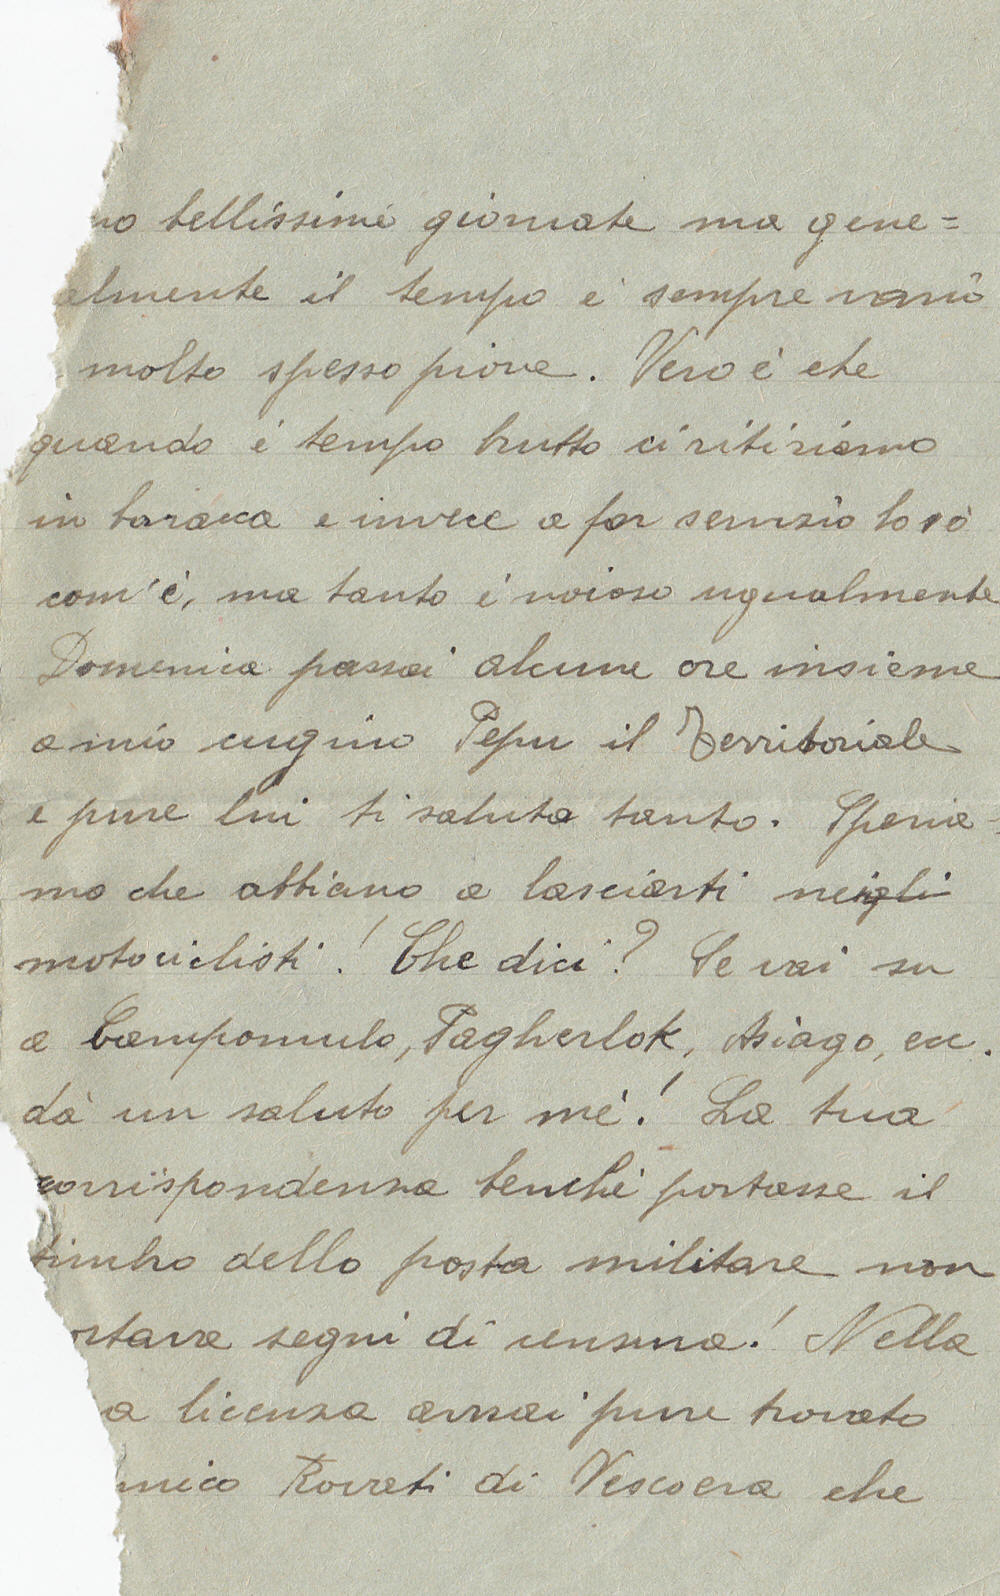 no bellissime giornate ma gene=
almente il tempo è sempre vario
molto spesso piove. Vero è che
quando è tempo brutto ci ritiriamo
in baracca e invece a far servizio lo sò
com'è, ma tanto è noioso ugualmente
Domenica passai alcune ore insieme
a mio cugino Pepu il Territoriale
e pure lui ti saluta tanto. Speria=
mo che abbiano a lasciarti nei gli
motociclisti! Che dici? Se vai su
a Campomulo, Tagherlok, Asiago, ecc.
dà un saluto per mé! La tua
corrispondenza benché portasse il
timbro dello posta militare non
ortava segni di censura! Nella
a licenza avrai pure trovato
mico Rovati di Vescovra che